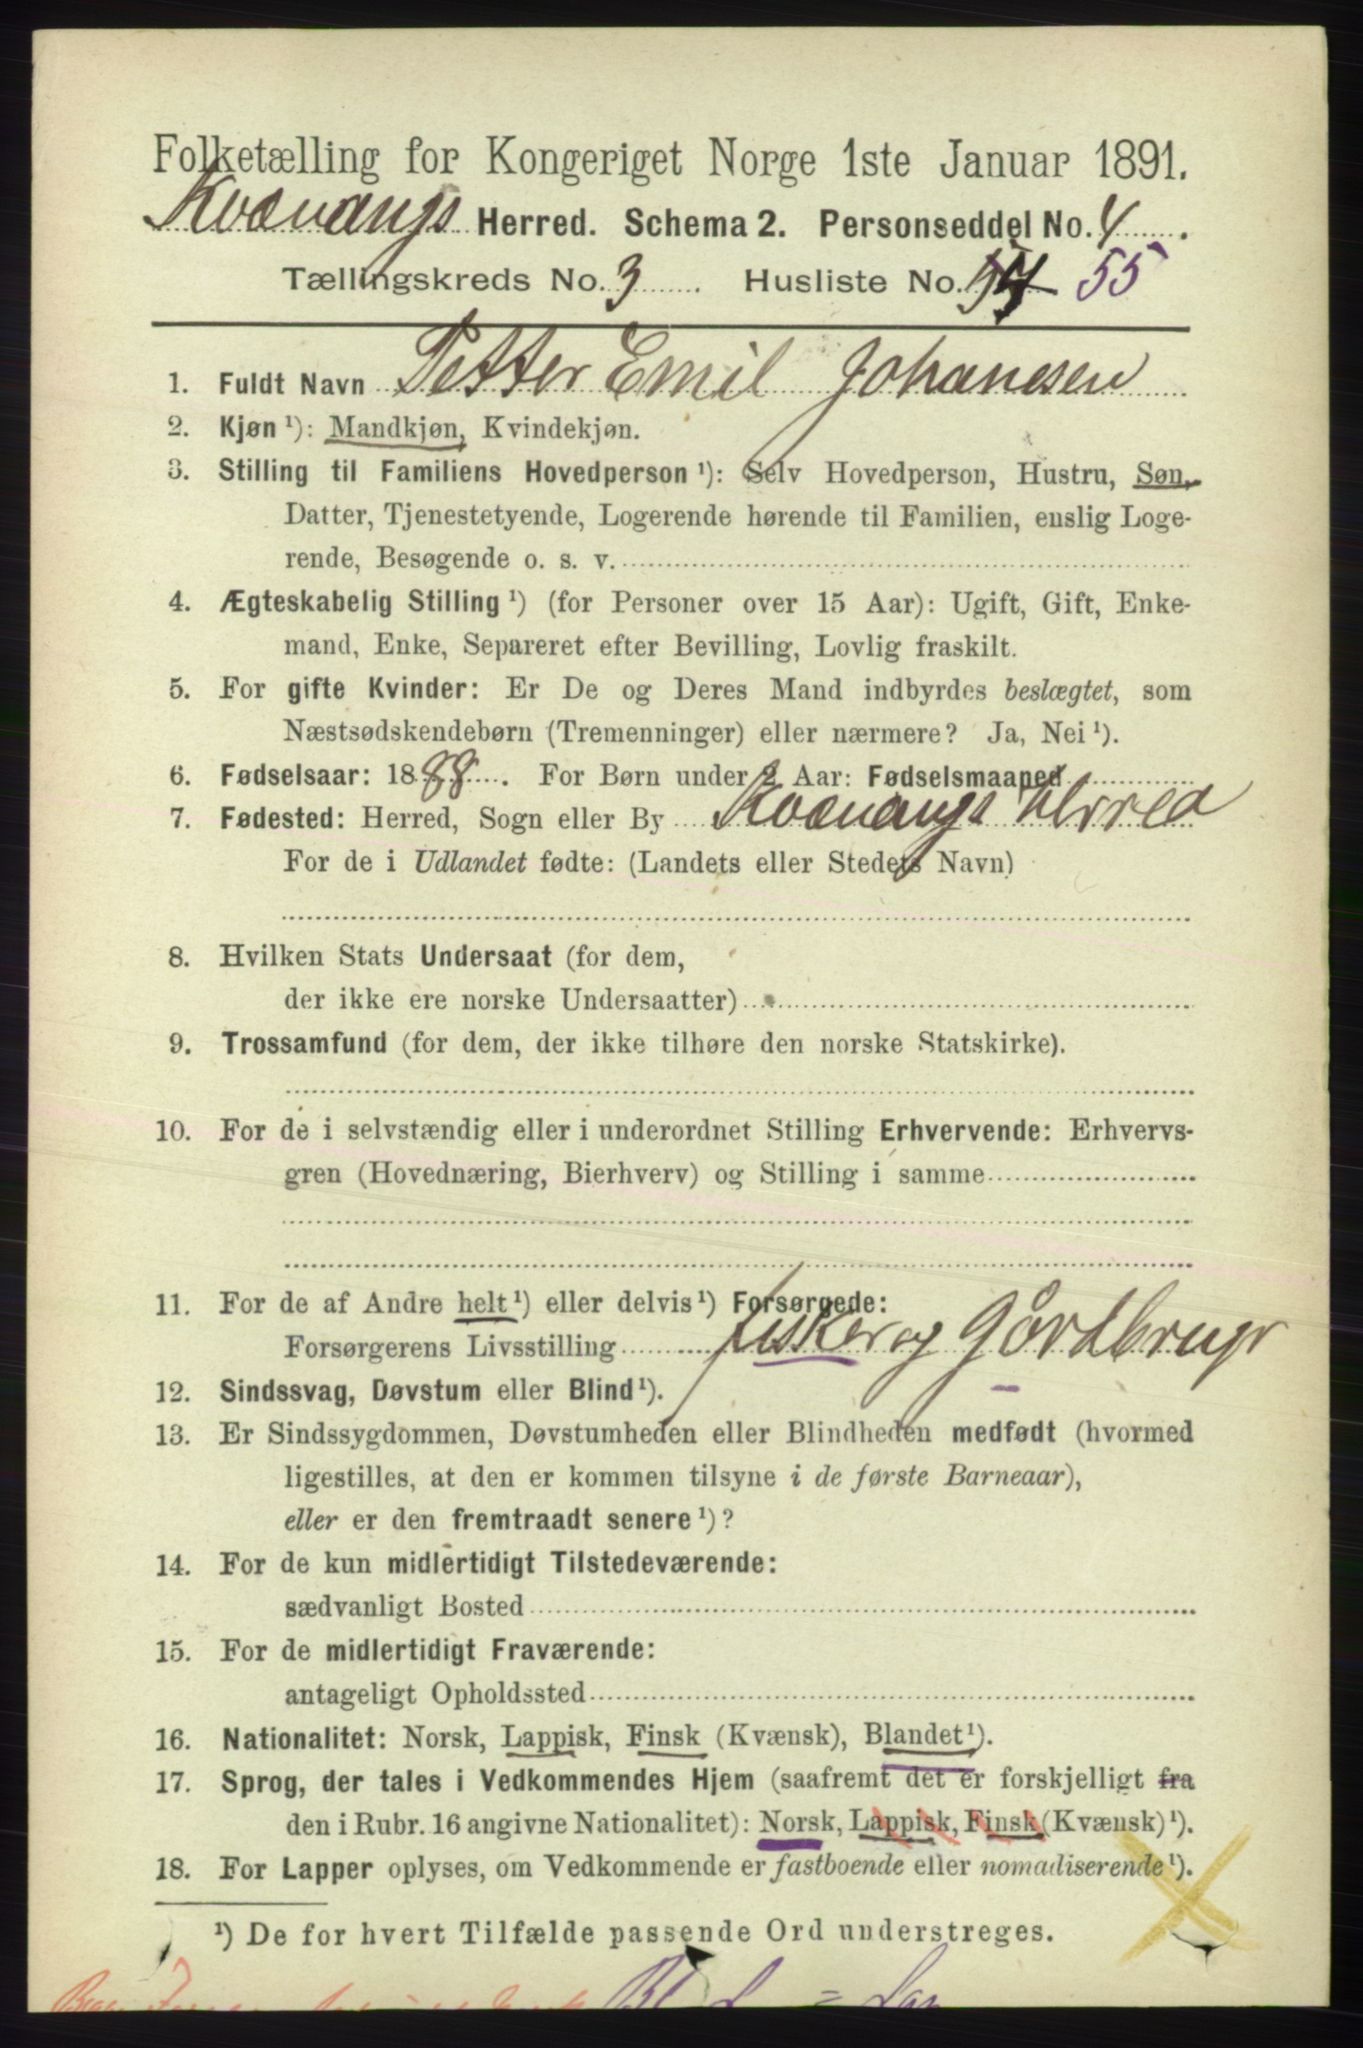 Folketælling for Kongeriget Norge 1ste Januar 1891.
Kvænangs Herred. Schema 2. Personseddel No. 4.
Tællingskreds No. 3. Husliste No. 54 55
1. Fuldt Navn Petter Emil Johanesen
2. Kjøn ¹): Mandkjøn, Kvindekjøn.
3. Stilling til Familiens Hovedperson ¹): Selv Hovedperson, Hustru, Søn,
Datter, Tjenestetyende, Logerende hørende til Familien, enslig Loge-
rende, Besøgende o. s. v.
4. Ægteskabelig Stilling ¹) (for Personer over 15 Aar): Ugift, Gift, Enke-
mand, Enke, Separeret efter Bevilling, Lovlig fraskilt.
5. For gifte Kvinder: Er De og Deres Mand indbyrdes beslægtet, som
Næstsødskendebørn (Tremenninger) eller nærmere? Ja, Nei ¹).
6. Fødselsaar: 1888. For Børn under 2 Aar: Fødselsmaaned
7. Fødested: Herred, Sogn eller By Kvænangs Herred
For de i Udlandet fødte: (Landets eller Stedets Navn)
8. Hvilken Stats Undersaat (for dem,
der ikke ere norske Undersaatter)
9. Trossamfund (for dem, der ikke tilhøre den norske Statskirke).
10. For de i selvstændig eller i underordnet Stilling Erhvervende: Erhvervs-
gren (Hovednæring, Bierhverv) og Stilling i samme
11. For de af Andre helt ¹) eller delvis ¹) Forsørgede:
Forsørgerens Livsstilling fisker og Gårdbruger
12. Sindssvag, Døvstum eller Blind ¹).
13. Er Sindssygdommen, Døvstumheden eller Blindheden medfødt (hvormed
ligestilles, at den er kommen tilsyne i de første Barneaar),
eller er den fremtraadt senere ¹)?
14. For de kun midlertidigt Tilstedeværende:
sædvanligt Bosted
15. For de midlertidigt Fraværende:
antageligt Opholdssted
16. Nationalitet: Norsk, Lappisk, Finsk (Kvænsk), Blandet ¹).
17. Sprog, der tales i Vedkommendes Hjem (saafremt det er forskjelligt fra
den i Rubr. 16 angivne Nationalitet): Norsk, Lappisk, Finsk (Kvænsk) ¹).
18. For Lapper oplyses, om Vedkommende er fastboende eller nomadiserende ¹).
¹) De for hvert Tilfælde passende Ord understreges.